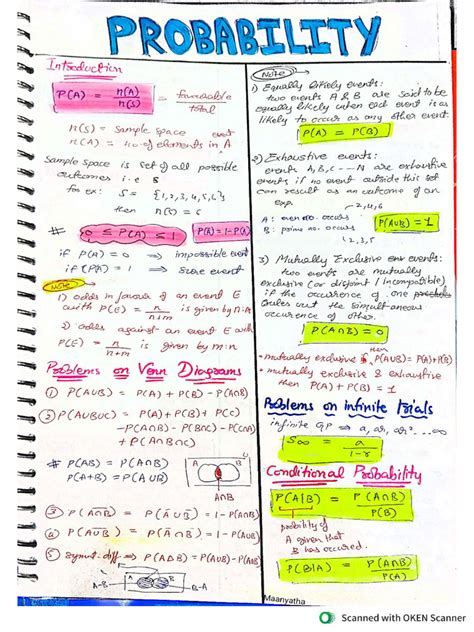 PROBABILITY
Introduction
P(A) = n(A)/n(S) = favourable/total
n(S) = sample space
n(A) = no. of elements in A
event
Sample space is set of all possible
outcomes i.e S
for ex: S = {1,2,3,4,5,6}
then n(S) = 6
# 0 ≤ P(A) ≤ 1
P(A̅) = 1-P(A)
if P(A) = 0 ⇒ impossible event
if (P(A) = 1 ⇒ sure event
Note
1) odds in favour of an event E
with P(E) = n/n+m is given by n:m
2) odds against an event E with
P(E) = n/n+m is given by m:n
Problems on Venn Diagrams
① P(A∪B) = P(A) + P(B) - P(A∩B)
② P(A∪B∪C) = P(A) + P(B) + P(C)
-P(A∩B) - P(B∩C) - P(A∩C)
+ P(A∩B∩C)
# P(AB) = P(A∩B)
P(A+B) = P(A∪B)
A B U
A∩B
⑤ symmt. diff ⇒ P(A∆B) = P(A∪B) - P(A∩B)
A-B
B-A
Note
1) Equally likely events:
two events A & B are said to be
equally likely when each event is as
likely to occur as any other event.
P(A) = P(B)
2) Exhaustive events:
events A,B,C ---N are exhaustive
events if no event outside this set
can result as an outcome of an
exp.
2,4,6
A: even no. occurs
P(A∪B) = 1
B: prime no. occurs
2,3,5
3) Mutually Exclusive events:
two events are mutually
exclusive (or disjoint / Incompatible)
if the occurrence of one
rules out the simultaneous
occurrence of other.
P(A∩B) = 0
• mutually exclusive P(A∪B) = P(A)+P(B)
• mutually exclusive & exhaustive
then P(A) + P(B) = 1
Problems on infinite trials
infinite GP ⇒ a, ar, ar² ---∞
S∞ = a/1-r
Conditional Probability
P(A|B) = P(A∩B)/P(B)
probability of
A given that
B has occured.
P(B|A) = P(A∩B)/P(A)
Maanyatha
Scanned with OKEN Scanner